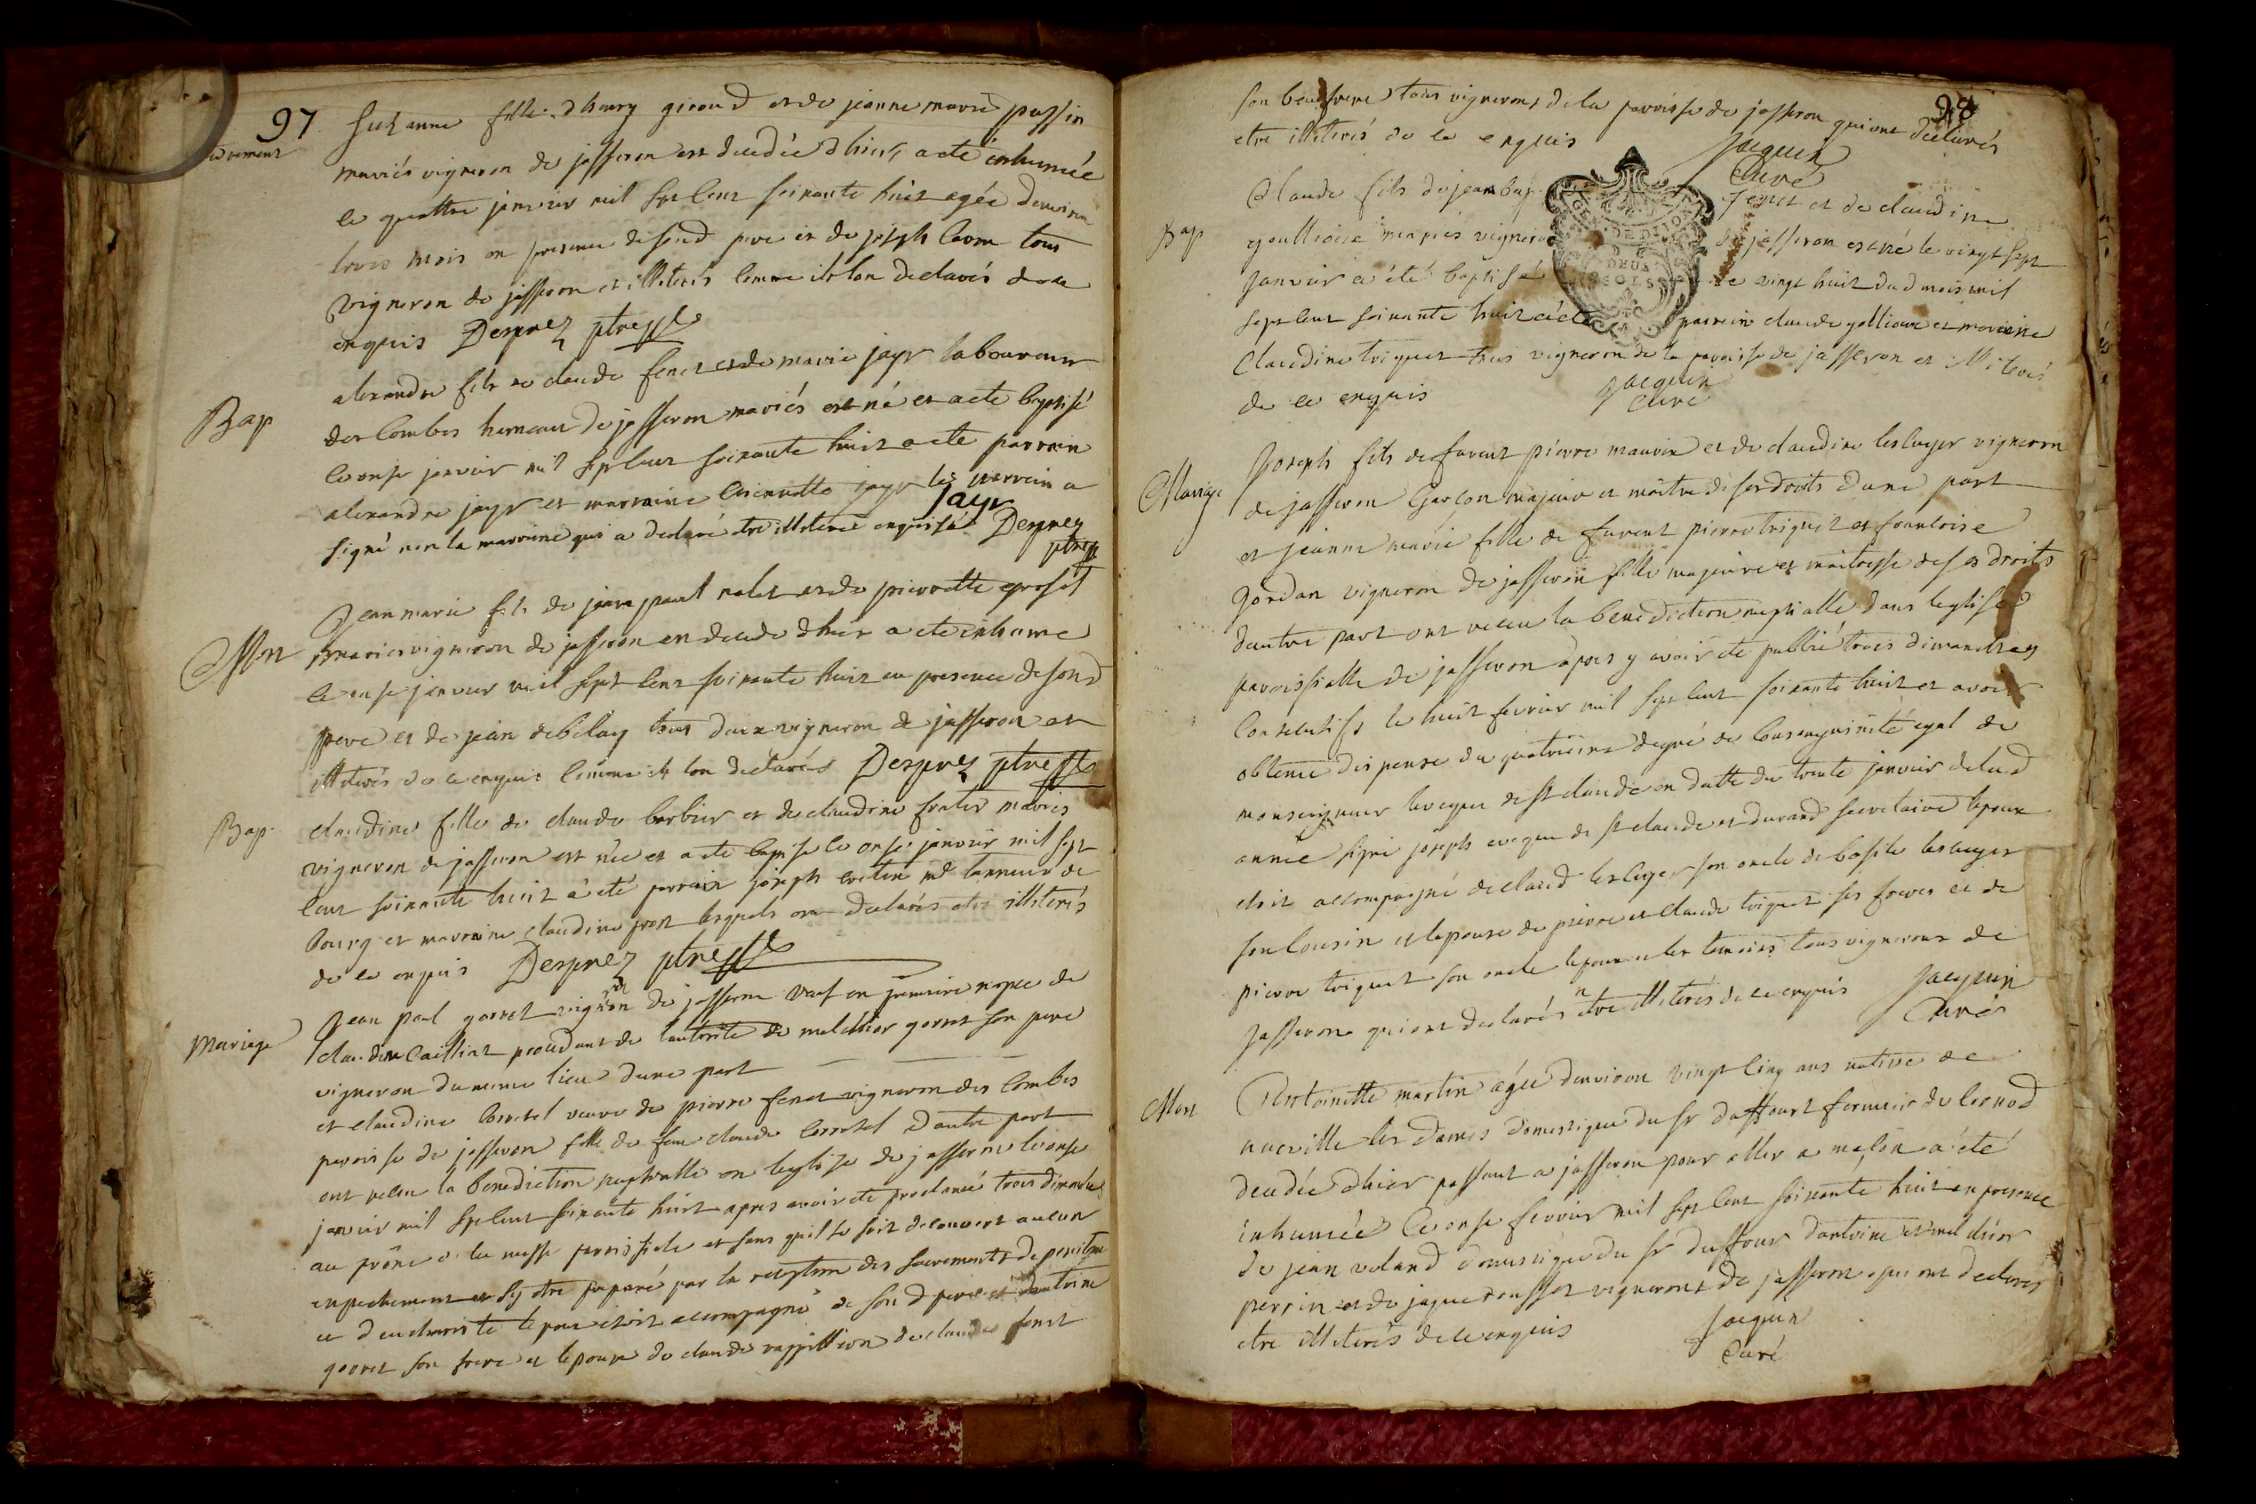 97
suzanne fille d henry giroud et de jeanne marie passin
mariés vigneron de jasseron est decédée d hier, a eté inhumée
le quattre janvier mil sept cent soixante huit agée denviron
trois mois en presence de son d pere et de joseph tous
vigneron de jasseron et illiterés comme ils lon declarés de ce
enquis Desprez ptre
Bap
alexandre fils de claude fenet et de marie jayr laboureur
des combes hameau de jasseron mariés est né et a eté baptisé
le onse janvier mil sept cent soixante huit a eté parrain
alexandre jayr et marraine jayr les parrain a
signé non la marraine qui a declaré etre illiterée enquise
Jayr Desprez
ptre
Mort
Jean marie fils de jean paul nalet et de pierrette
mariés vigneron de jasseron en decede d hier a eté inhumé
le onse janvier mil sept cent soixante huit en presence de son d
pere et de jean debelay tous deux vigneron de jasseron et
illiterés de ce enquis comme ils lon declarés Desprez ptre
Bap
claudine fille de claude barbier et de claudine frater mariés
vigneron de jasseron est née et a eté baptisé le onse janvier mil sept
cent soixante huit a eté parrain joseph md tanneur de
bourg et marraine claudine pront lesquels on declarés etre illiterés
de ce enquis Desprez ptre
Mariage
Jean paul gorret vigneron de jasseron veuf en premiere nopce de
claudine cailliat procedant de lautorité de melchior gorret son pere
vigneron du meme lieu dune part
et claudine corretel veuve de pierre fenet vigneron des combes
paroisse de jasseron fille de feu claude corretel dautre part
ont recu la benediction nuptialle en leglise de jasseron le onse
janvier mil sept cent soixante huit apres avoir eté proclamé trois dimanches
au prône de la messe paroissiale et sans quil se soit decouvert aucun
enpechement et sy etre preparé par la reception des sacrements de penitence
et deucharistie lepoux etoit accompagné de son d pere et dantoine
gorret son frere et lepouse de claude rappillion de claude fenet
98
son beaufrere tous vignerons de la paroisse de jasseron qui ont declarés
etre illiterés de ce enquis
Jacquin
Curé
Bap
Claude fils de jean bap fenet et de claudine
goullioux mariés vigneron de jasseron est né le vingt sept
janvier a été baptisé le vingt huit dud mois mil
sept cent soixante huit a eté parrein claude gollioux et marreine
Claudine triquet tous vigneron de la paroisse de jasseron et illiterés
de ce enquis
Jacquin
Curé
Mariage
Joseph fils de favent pierre mauvin et de claudine lescuyer vigneron
de jasseron Garçon majeur et maitre de ses droits dune part
et jeanne marie fille de favent pierre triquet et francoise
Jordan vigneron de jasseron fille majeure et maitresse de ses droits
dautre part ont receu la benediction nuptialle dans leglise
paroissialle de jasseron apres y avoir eté publié trois dimanches
consecutifs le huit fevrier mil sept cent soixante huit et avoir
obtenu dispense du quatrieme degré de consenguinité egal de
monseigneur leveque de st claude en datte du trente janvier delad
année signé joseph eveque de st claude et durand secretaire lepoux
etoit accompagné de claud lescuyer son oncle de basile lescuyer
son cousin et lepouse de pierre et claude triquet ses freres et de
pierre triquet son oncle lepoux et les temoins tous vignerons de
jasseron qui ont declarés etre illiterés de ce enquis
Jacquin
Curé
Mort
Antoinette martin agée denviron vingt cinq ans native de
neuville les dames domestique du sr duffour fermier de
decedée d hier passant a jasseron pour aller a a eté
inhumée le onse fevrier mil sept cent soixante huit en presence
de jean voland domestique du sr duffour dantoine et melchior
perrin et de jaque vignerons de jasseron qui ont declarés
etre illiterés de ce enquis
Jacquin
Curé